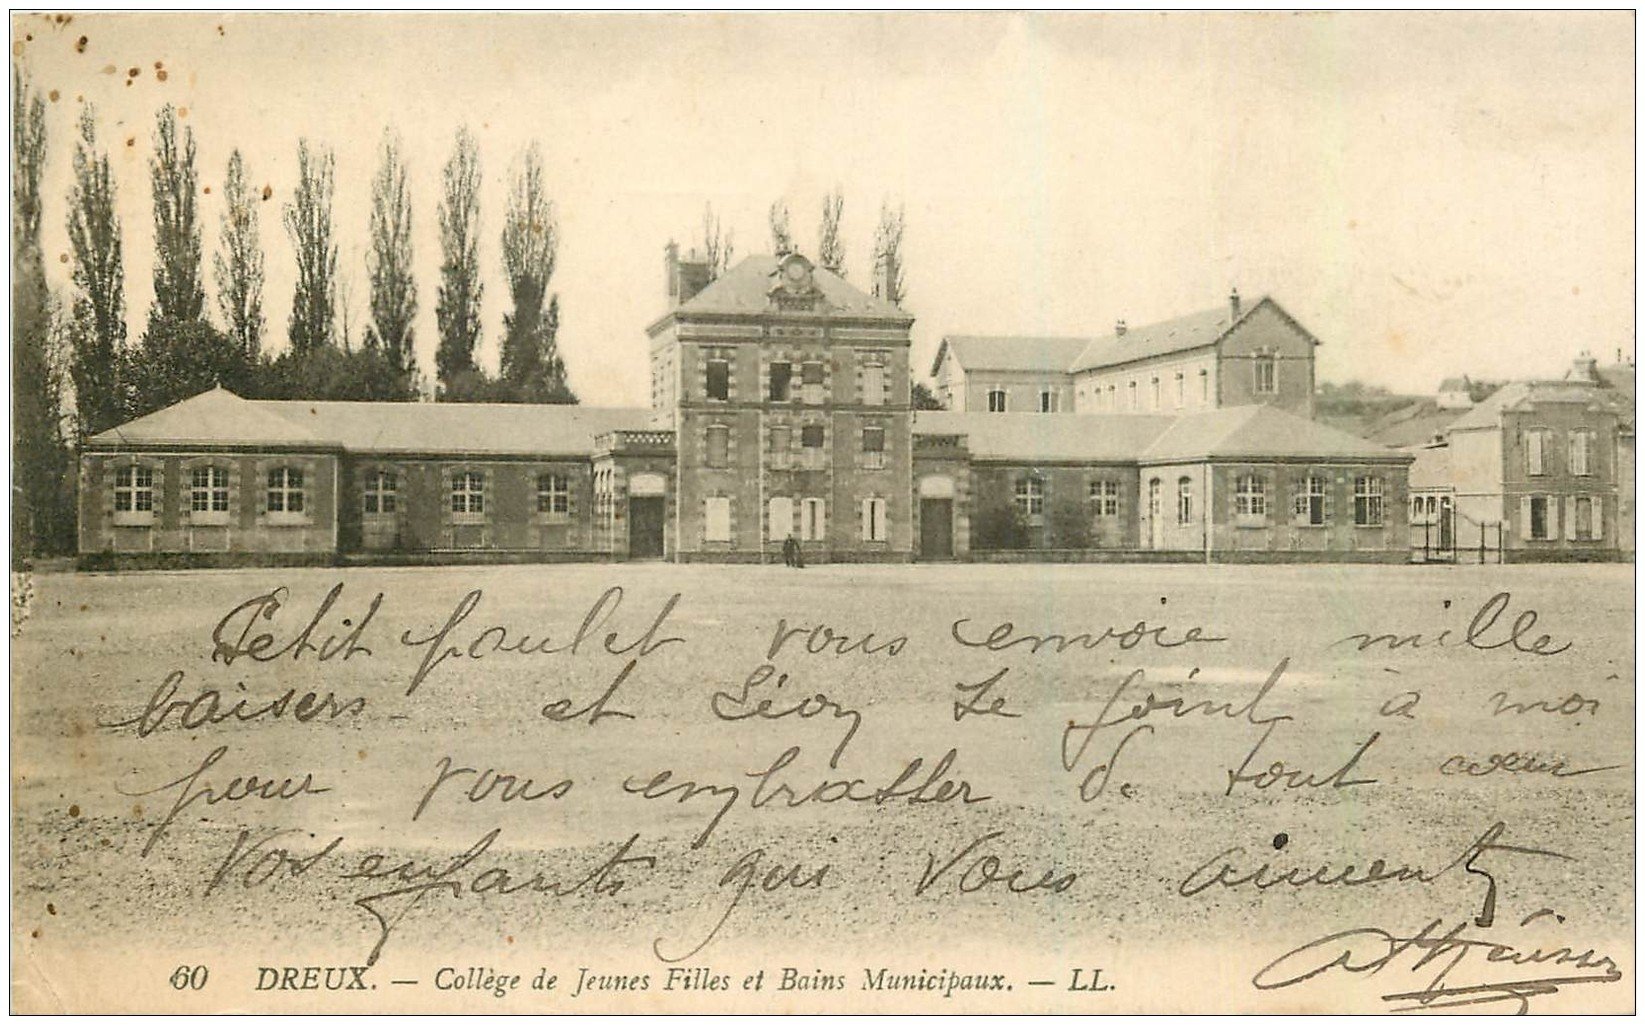 Petit paulet vous envoie mille
baisers et Léon se joint à moi
pour vous embrasser de tout coeur
Vos enfants qui vous aiment
60 DREUX. — Collège de Jeunes Filles et Bains Municipaux. — LL.